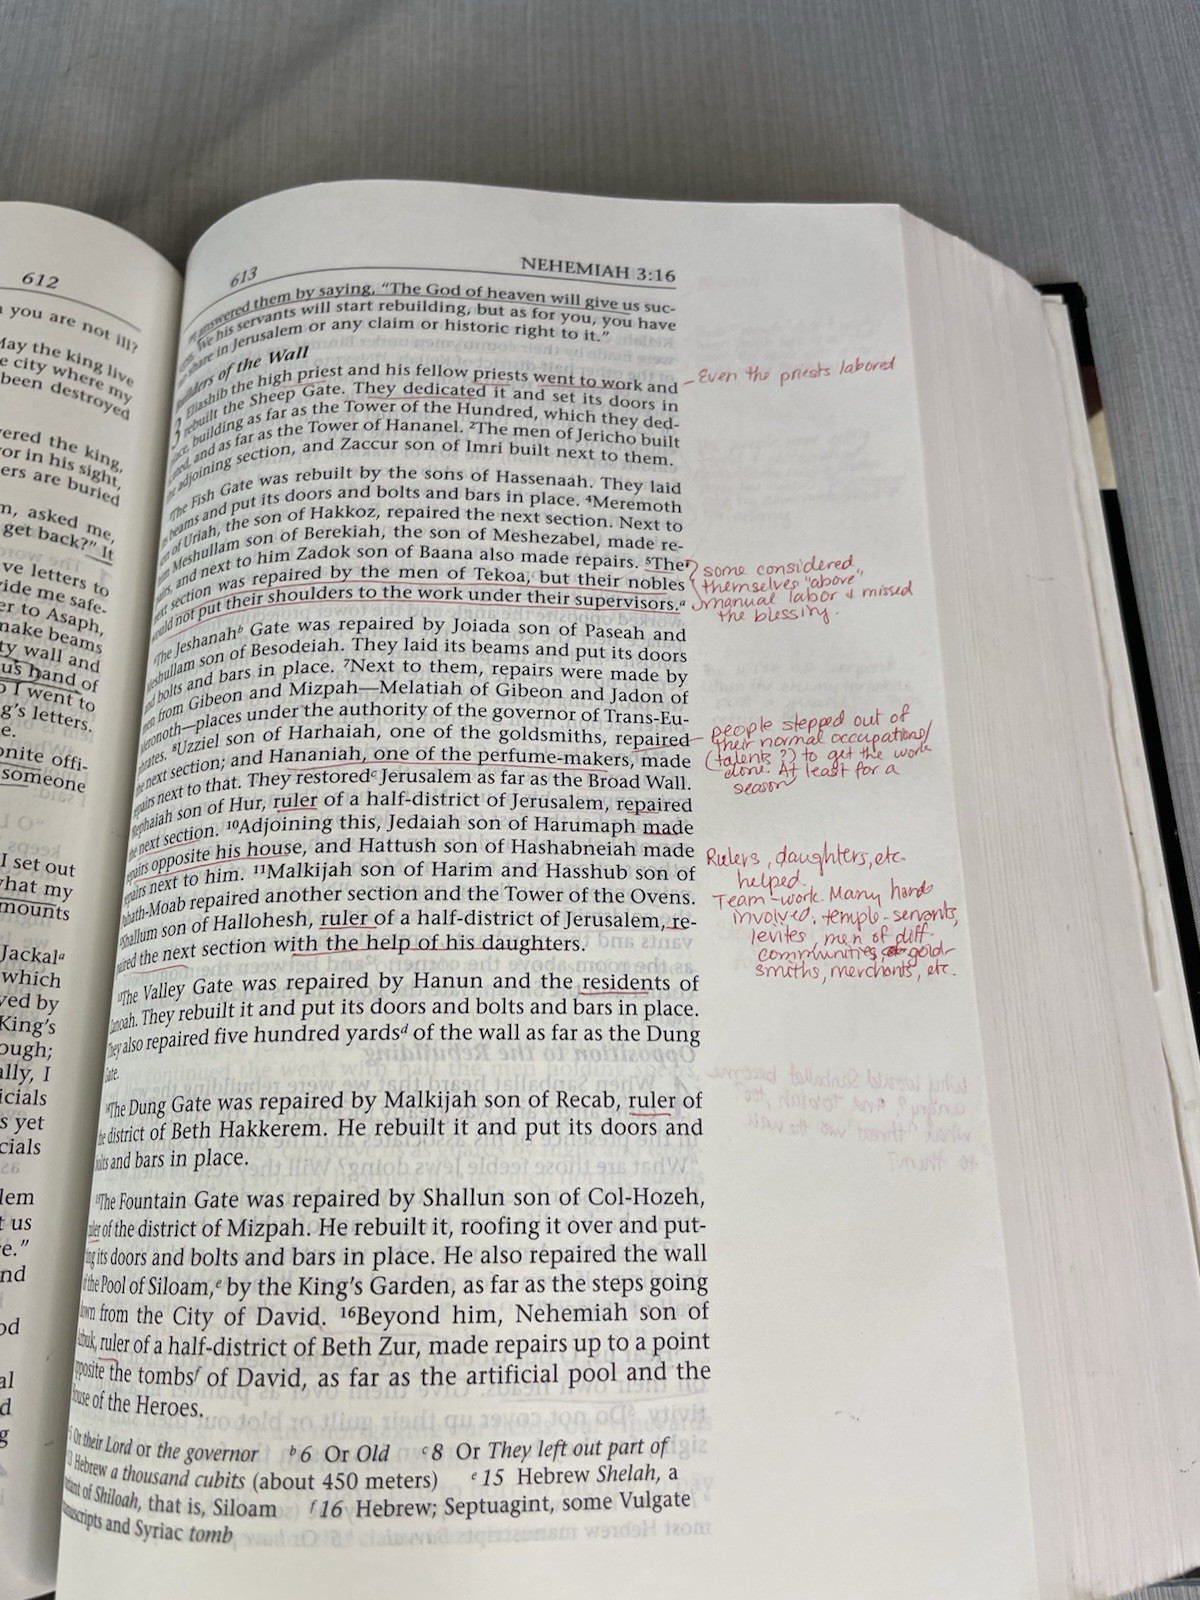 612
you are not ill?
May the king live
e city where my
been destroyed
ered the king,
or in his sight,
ers are buried
m, asked me,
get back?" It
ve letters to
vide me safe-
er to Asaph,
make beams
ty wall and
us hand of
I went to
g's letters.
e.
onite offi-
someone
I set out
what my
mounts
Jackalᵃ
which
yed by
King's
ough;
ally, I
icials
s yet
cials
lem
t us
e."
nd
od
al
d
g
613
NEHEMIAH 3:16
answered them by saying, "The God of heaven will give us suc-
We his servants will start rebuilding, but as for you, you have
share in Jerusalem or any claim or historic right to it."
Builders of the Wall
3 Eliashib the high priest and his fellow priests went to work and
rebuilt the Sheep Gate. They dedicated it and set its doors in
place, building as far as the Tower of the Hundred, which they ded-
icated, and as far as the Tower of Hananel. ²The men of Jericho built
the adjoining section, and Zaccur son of Imri built next to them.
³The Fish Gate was rebuilt by the sons of Hassenaah. They laid
its beams and put its doors and bolts and bars in place. ⁴Meremoth
son of Uriah, the son of Hakkoz, repaired the next section. Next to
him Meshullam son of Berekiah, the son of Meshezabel, made re-
pairs, and next to him Zadok son of Baana also made repairs. ⁵The
next section was repaired by the men of Tekoa, but their nobles
would not put their shoulders to the work under their supervisors.ᵃ
⁶The Jeshanahᵇ Gate was repaired by Joiada son of Paseah and
Meshullam son of Besodeiah. They laid its beams and put its doors
and bolts and bars in place. ⁷Next to them, repairs were made by
men from Gibeon and Mizpah—Melatiah of Gibeon and Jadon of
Meronoth—places under the authority of the governor of Trans-Eu-
phrates. ⁸Uzziel son of Harhaiah, one of the goldsmiths, repaired
the next section; and Hananiah, one of the perfume-makers, made
repairs next to that. They restoredᶜ Jerusalem as far as the Broad Wall.
Rephaiah son of Hur, ruler of a half-district of Jerusalem, repaired
the next section. ¹⁰Adjoining this, Jedaiah son of Harumaph made
repairs opposite his house, and Hattush son of Hashabneiah made
repairs next to him. ¹¹Malkijah son of Harim and Hasshub son of
Pahath-Moab repaired another section and the Tower of the Ovens.
Shallum son of Hallohesh, ruler of a half-district of Jerusalem, re-
paired the next section with the help of his daughters.
¹³The Valley Gate was repaired by Hanun and the residents of
Zanoah. They rebuilt it and put its doors and bolts and bars in place.
They also repaired five hundred yardsᵈ of the wall as far as the Dung
Gate.
¹⁴The Dung Gate was repaired by Malkijah son of Recab, ruler of
the district of Beth Hakkerem. He rebuilt it and put its doors and
bolts and bars in place.
¹⁵The Fountain Gate was repaired by Shallun son of Col-Hozeh,
ruler of the district of Mizpah. He rebuilt it, roofing it over and put-
ting its doors and bolts and bars in place. He also repaired the wall
of the Pool of Siloam,ᵉ by the King's Garden, as far as the steps going
down from the City of David. ¹⁶Beyond him, Nehemiah son of
Azbuk, ruler of a half-district of Beth Zur, made repairs up to a point
opposite the tombsᶠ of David, as far as the artificial pool and the
House of the Heroes.
5 Or their Lord or the governor ᵇ6 Or Old ᶜ8 Or They left out part of
13 Hebrew a thousand cubits (about 450 meters) ᵉ15 Hebrew Shelah, a
variant of Shiloah, that is, Siloam ᶠ16 Hebrew; Septuagint, some Vulgate
manuscripts and Syriac tomb
- Even the priests labored
some considered
themselves "above"
manual labor & missed
the blessing.
people stepped out of
their normal occupations/
(talents ??) to get the work
done. At least for a
season
Rulers, daughters, etc.
helped.
Team-work. Many hands
involved. temple-servants,
levites, men of diff.
communities, gold-
smiths, merchants, etc.